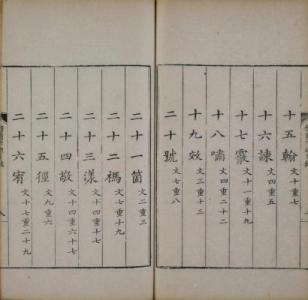 十五翰 文十重七
十六諫 文四重五
十七霰 文十一重十九
十八嘯 文四重二十二
十九效 文三重十三
二十號 文七重八
二十一箇 文二重三
二十二禡 文七重十九
二十三漾 文七重二十
二十四敬 文十四重六十七
二十五徑 文九重六
二十六宥 文十七重二十九